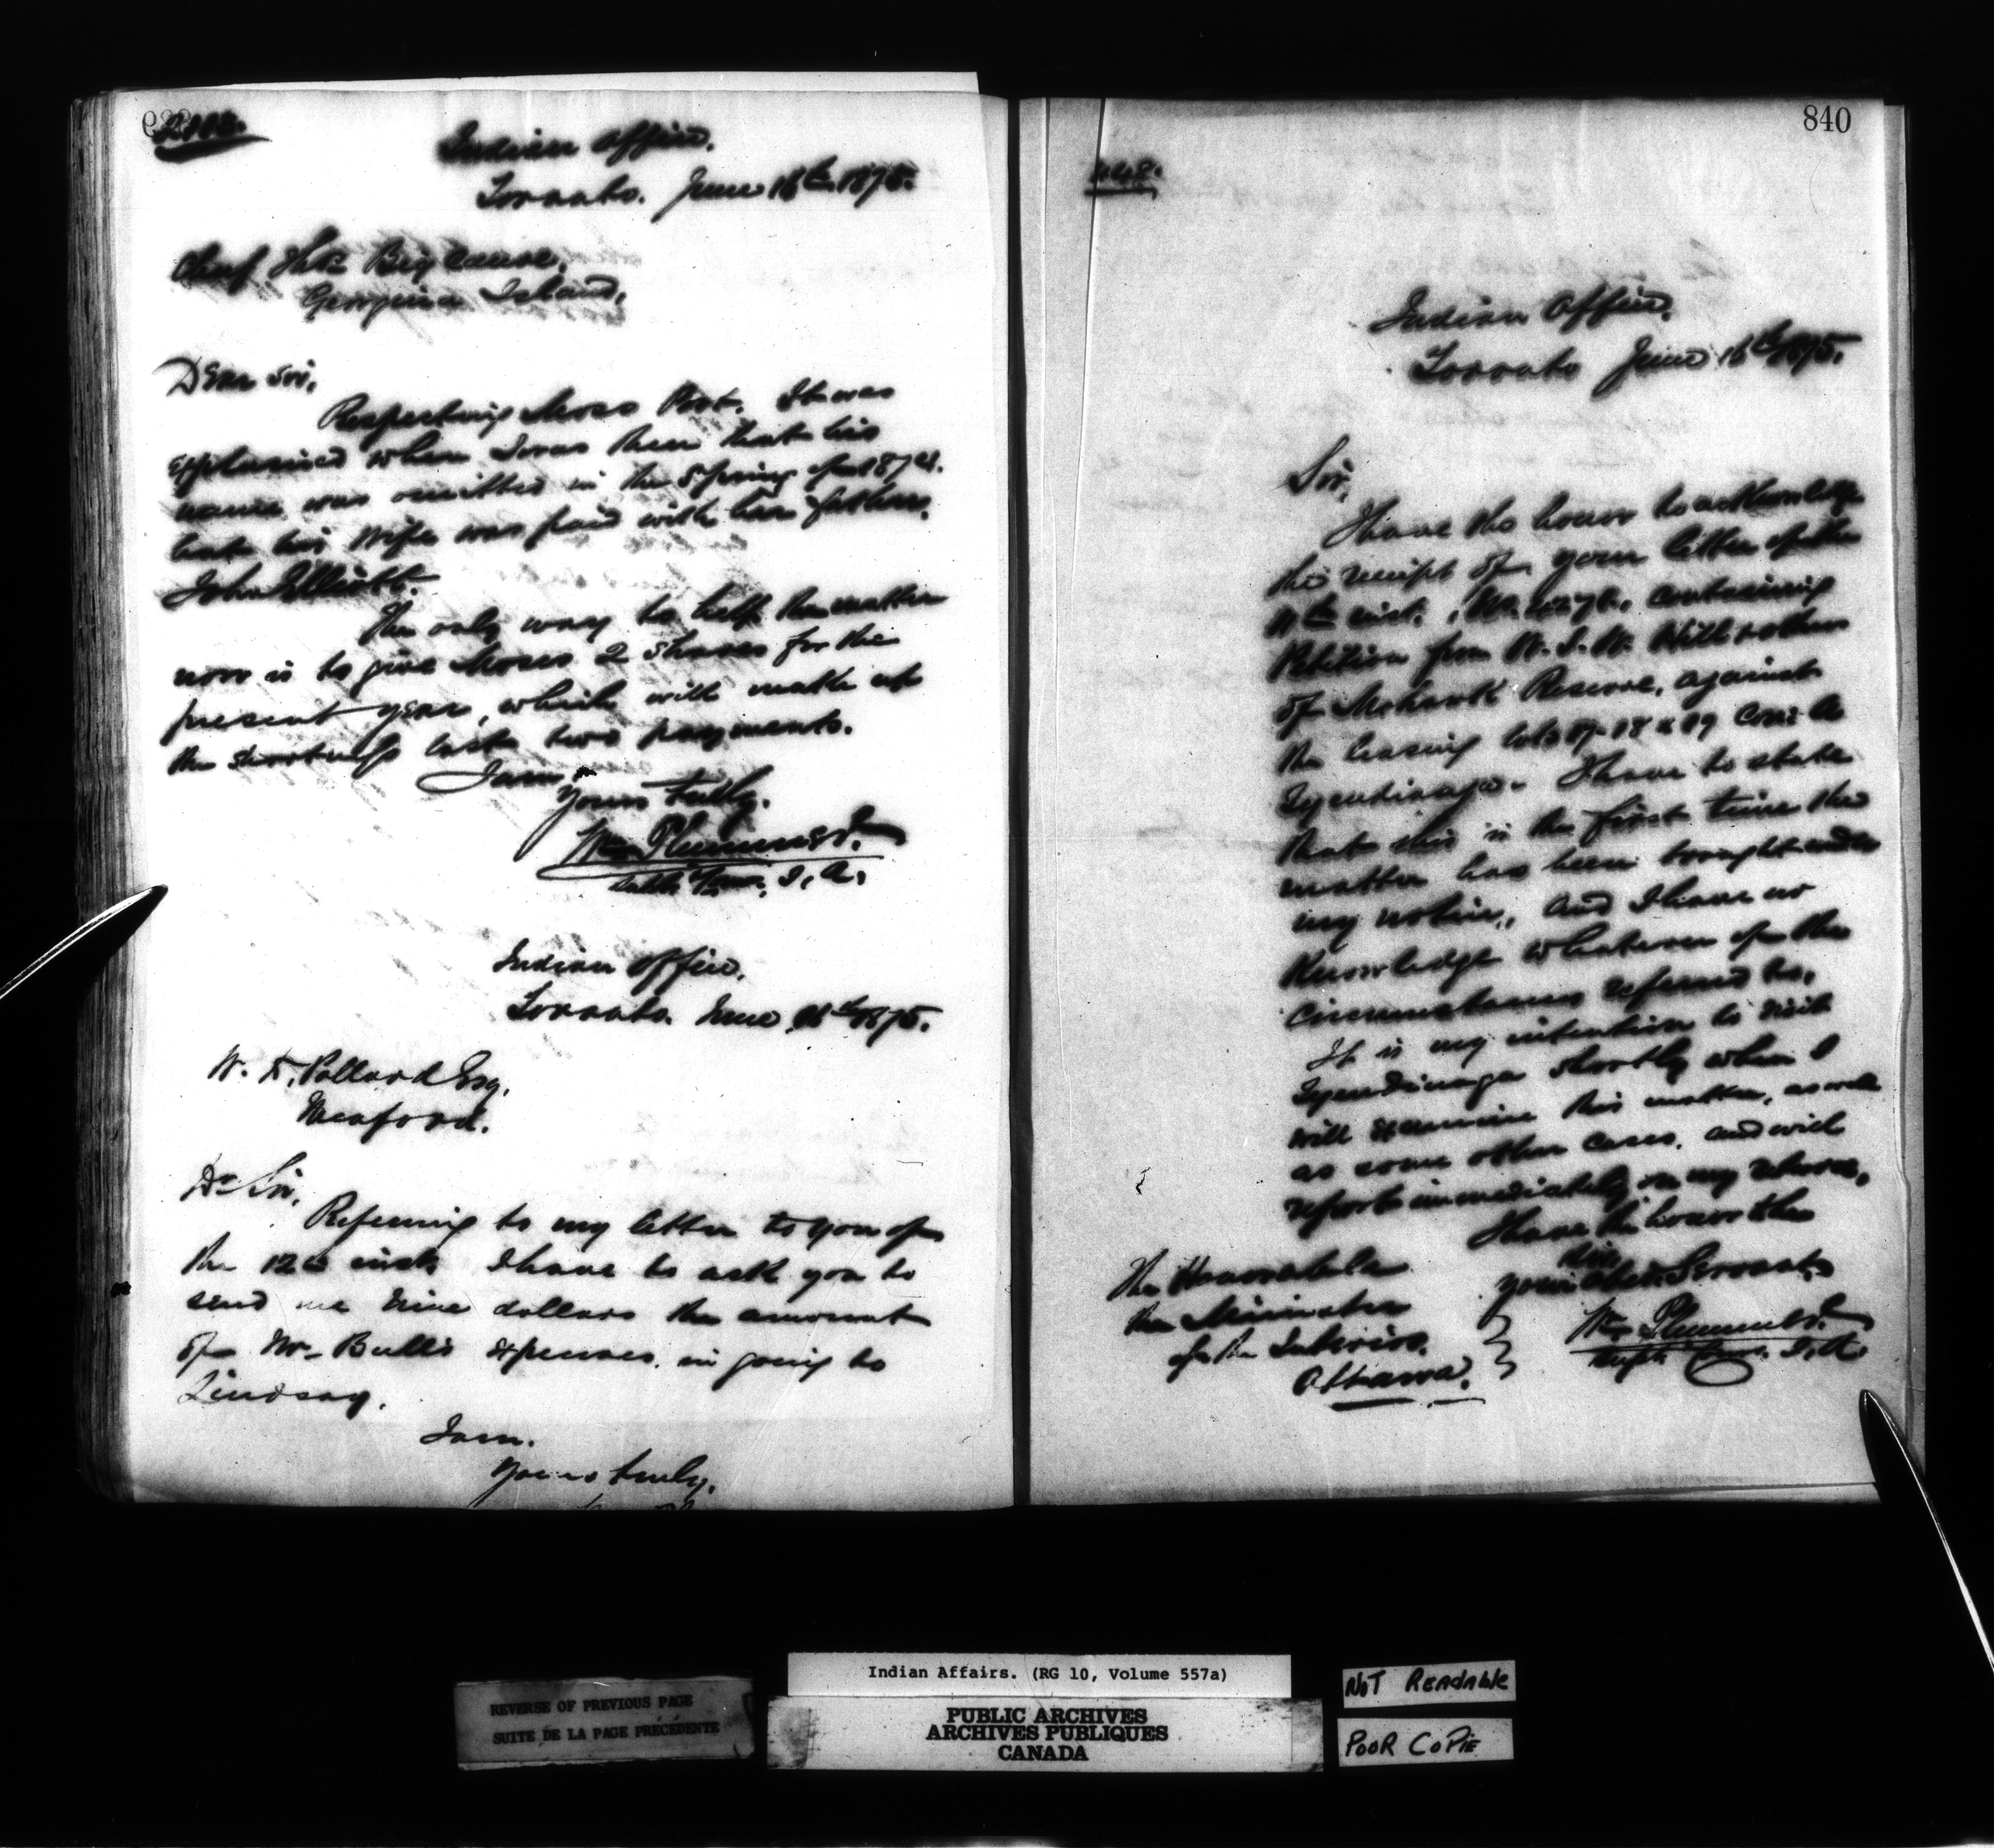 Indian Office,
Toronto. June 16th 1875.
Chief Big Canoe,
Georgina Island,
Dear Sir,
Respecting Moses Post. It was
explained when I was there that his
name was omitted in the Spring of 1874.
but his Wife was paid with her father,
John Elliott.
The only way to help the matter
now is to give Moses 2 Shares for the
present year, which will make up
the shortness last two payments.
I am
Yours Truly.
Wm Plummer
I. A.
Indian Office,
Toronto. June 16th 1875.
W. Pollard Esq.
Meaford.
Dr Sir,
Referring to my letter to you of
the 12th inst. I have to ask you to
send me nine dollars the amount
of Mr Bull's expenses in going to
Lindsay.
I am.
Yours truly,
840
Indian Office,
Toronto June 16th 1875.
Sir,
I have the honor to acknowledge
the receipt of your letter of the
inst., No. containing
Petition from W. J. W. Hill & others
of Mohawk Reserve, against
the leasing lots 17-18 & 19 Con: A
Tyendinaga. I have to state
that this is the first time the
matter has been brought under
my notice, and I have no
Knowledge whatever of the
Circumstances referred to.
It is my intention to visit
Tyendinaga shortly when I
will examine this matter, as well
as some other cases, and will
report immediately on my return,
I have the honor to be
Sir
your Obedt. Servant,
Wm Plummer
Supt. Com. I. A.
The Honorable
the Minister
of the Interior,
Ottawa.
REVERSE OF PREVIOUS PAGE
SUITE DE LA PAGE PRÉCÉDENTE
Indian Affairs. (RG 10, Volume 557a)
PUBLIC ARCHIVES
ARCHIVES PUBLIQUES
CANADA
NOT READABLE
POOR COPIE